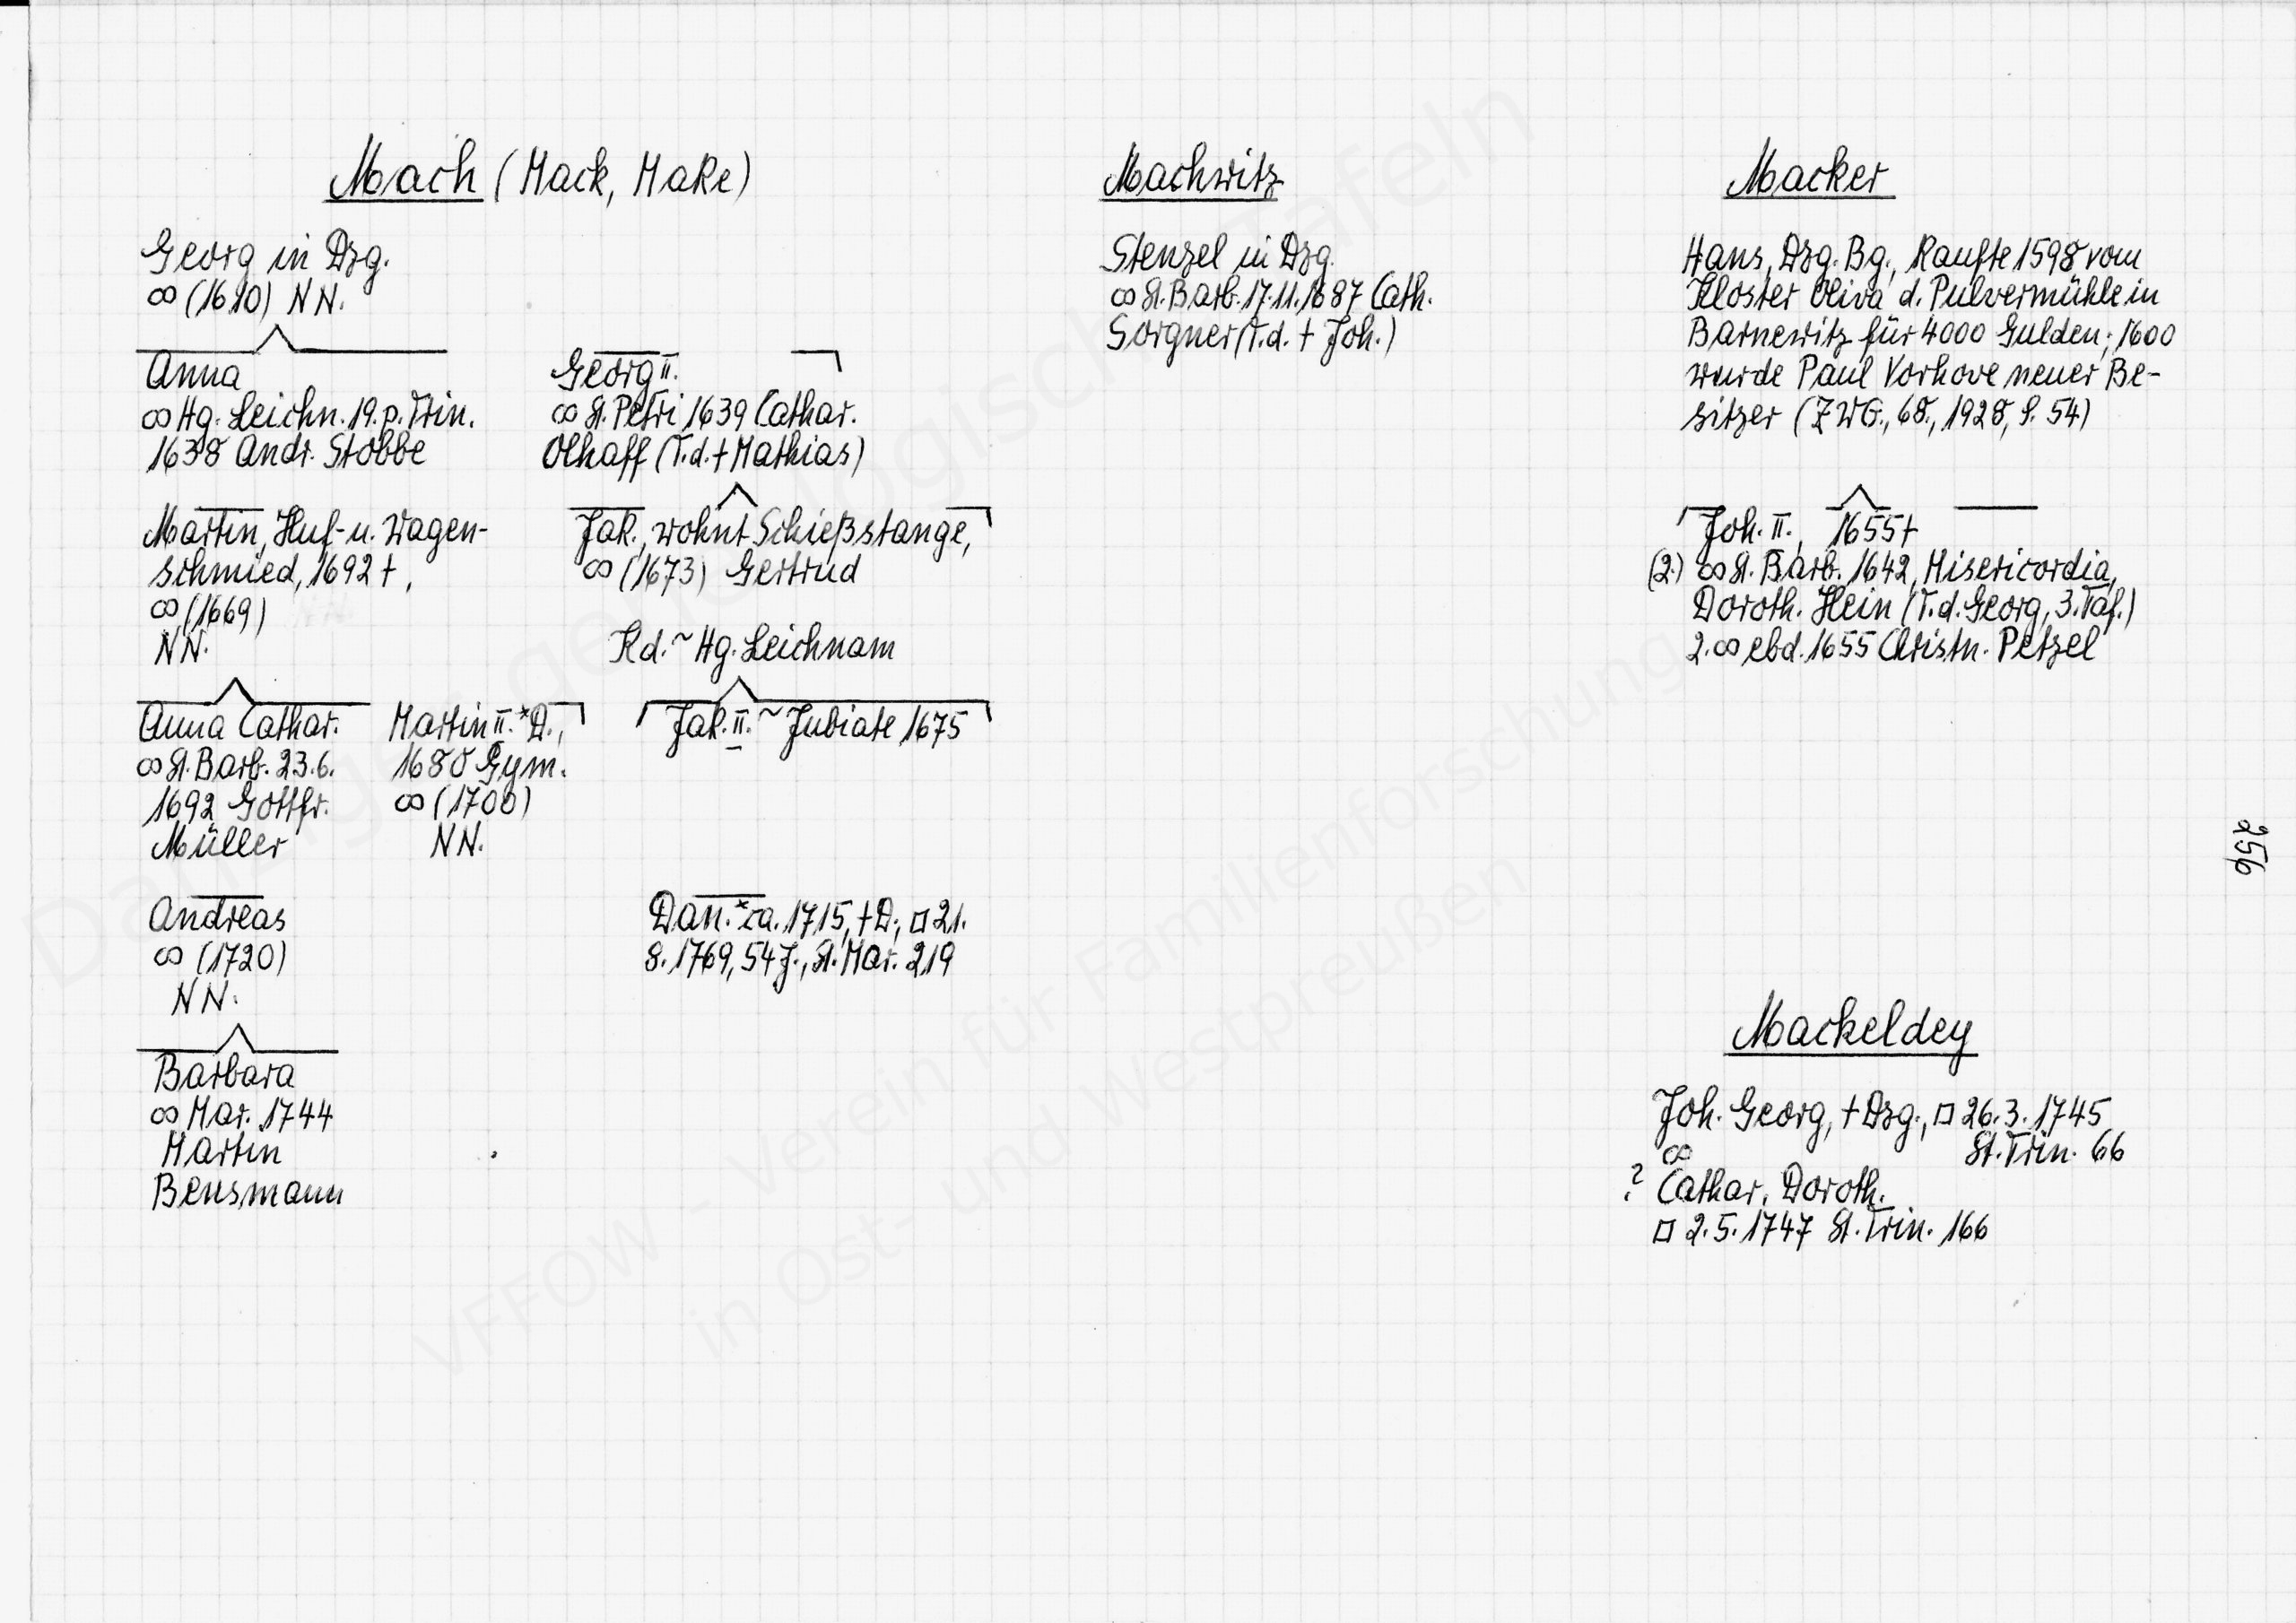 Mach (Mack, Make)
Georg in Dzg.
∞ (1610) NN.
Anna
∞ Hg. Leichn. 19. p. Trin.
1638 Andr. Stobbe
Georg II.
∞ St. Petri 1639 Cathar.
Olhaff (T. d. + Mathias)
Martin, Huf- u. Wagen-
schmied, 1692 +,
∞ (1669)
NN.
Jak., wohnt Schießstange,
∞ (1673) Gertrud
Kd. ~ Hg. Leichnam
Anna Cathar.
∞ St. Barb. 23.6.
1692 Gottfr.
Müller
Martin II. * D.,
1680 Gym.
∞ (1700)
NN.
Jak. II. ~ Jubiate 1675
Andreas
∞ (1720)
NN.
Dan. * ca. 1715, + D., □ 21.
8. 1769, 54 J., St. Mar. 219
Barbara
∞ Mar. 1744
Martin
Bensmann
Machwitz
Stenzel in Dzg.
∞ St. Barb. 17.11.1687 Cath.
Sorgner (T. d. + Joh.)
Macker
Hans, Dzg. Bg., kaufte 1598 vom
Kloster Oliva d. Pulvermühle in
Barnewitz für 4000 Gulden; 1600
wurde Paul Vorhove neuer Be-
sitzer (ZWG., 68., 1928, S. 54)
Joh. II., 1655 +
(2.) ∞ St. Barb. 1642, Misericordia,
Doroth. Hein (T. d. Georg, 3. Taf.)
2. ∞ ebd. 1655 Christn. Petzel
Mackeldey
Joh. Georg, + Dzg., □ 26.3.1745
∞ St. Trin. 66
? Cathar. Doroth.
□ 2.5.1747 St. Trin. 166
256
Danziger genealogische Tafeln
VFFOW - Verein für Familienforschung
in Ost- und Westpreußen